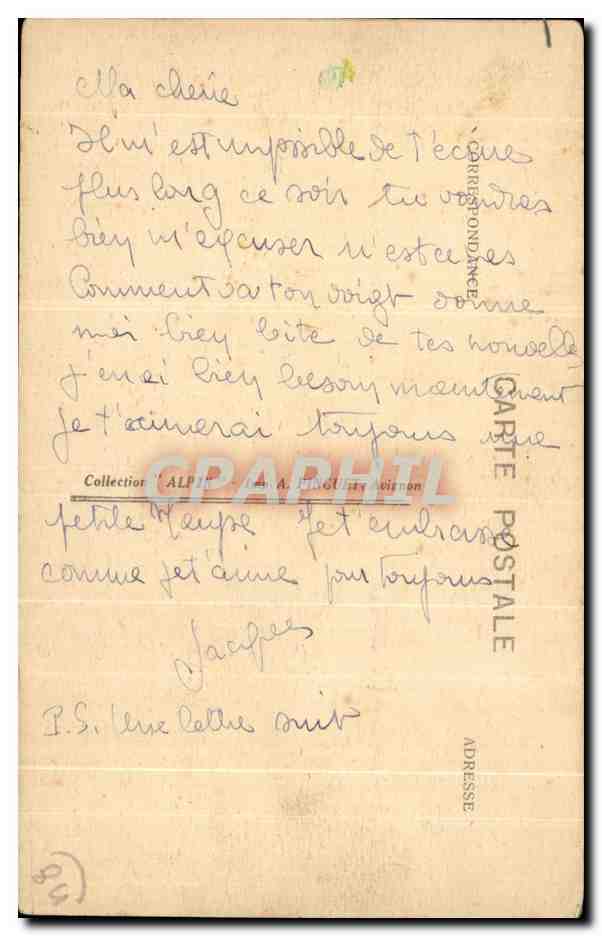 Ma cherie
Il m'est impossible de t'ecrire
plus long ce soir tu voudras
bien m'excuser n'est ce pas
Comment va ton doigt donne
moi bien vite de tes nouvelles
j'en ai bien besoin maintenant
Je t'aimerai toujours ma
Collection "ALPI" - Imp. A. RINGUET, Avignon
petite Je t'embrasse
comme je t'aime pour toujours
Jacques
P.S. Une lettre suit
CORRESPONDANCE
CARTE POSTALE
ADRESSE
CPAPHIL
84